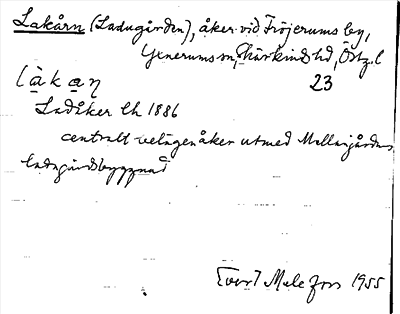 Lakårn (Ladugården), åker vid Fröjerums by,
Yxnerums sn, Skärkinds hd, Östg. l
l à k a ṇ 23
Ladåker Lh 1886
centralt belägen åker utmed Mellangårdens
ladugårdsbyggnad
Malefors 1955